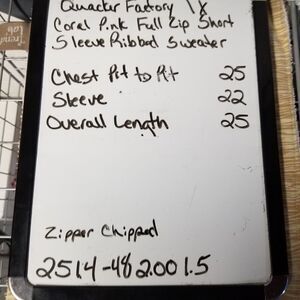 Quacker Factory 1X
Coral Pink Full Zip Short
Sleeve Ribbed Sweater
Chest Pit to Pit 25
Sleeve 22
Overall Length 25
Zipper Chipped
2514-48 2.00 1.5